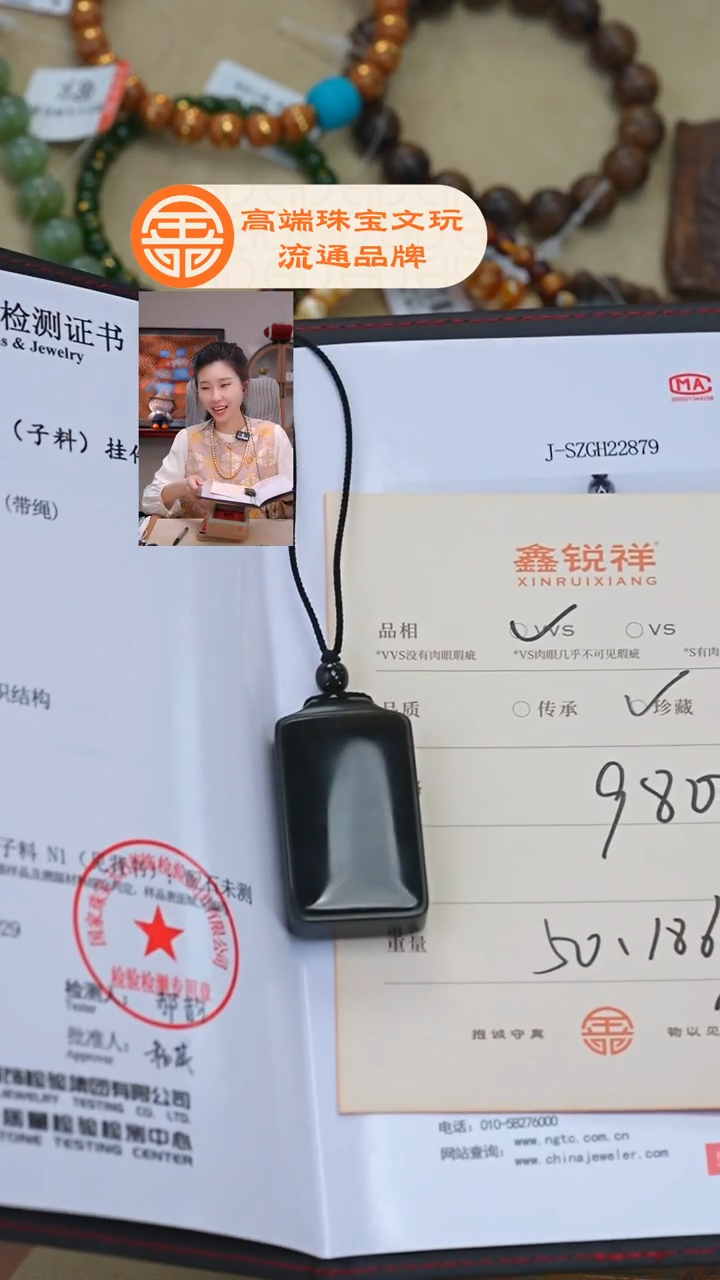 高端珠宝文玩
流通品牌
检测证书
s & Jewelry
（子料）挂
（带绳）
织结构
子料 N1
未测
29
检验检测专用章
检测人：
Tester
批准人：
Approver
饰检验集团有限公司
JEWELRY TESTING CO. LTD.
质量检验检测中心
STONE TESTING CENTER
MA
J-SZGH22879
鑫锐祥
XINRUIXIANG
品相
VVS
VS
*VVS没有肉眼瑕疵
*VS肉眼几乎不可见瑕疵
*S有肉
品质
传承
珍藏
980
重量
50.186
推诚守真
物以见
电话：010-58276000
网站查询：
www.ngtc.com.cn
www.chinajeweler.com